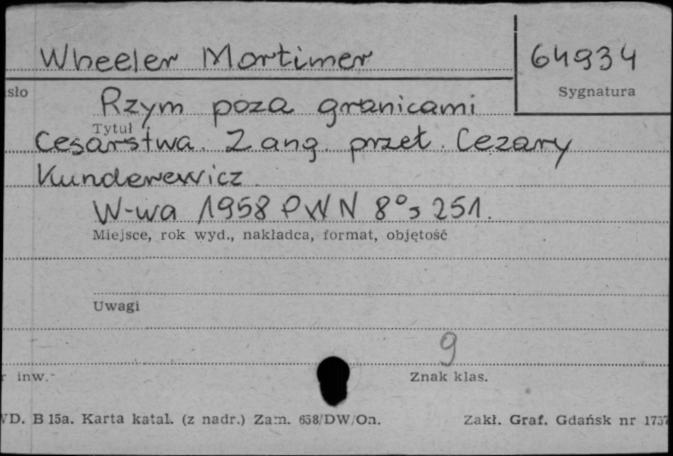 Wheeler Mortimer
64934
sło
Sygnatura
Rzym poza granicami
Tytuł
Cesarstwa. Z ang. przeł. Cezary
Kunderewicz
W-wa 1958 PWN 8°s 251.
Miejsce, rok wyd., nakładca, format, objętość
Uwagi
9
r inw.
Znak klas.
VD. B 15a. Karta katal. (z nadr.) Zam. 658/DW/On.
Zakł. Graf. Gdańsk nr 1737